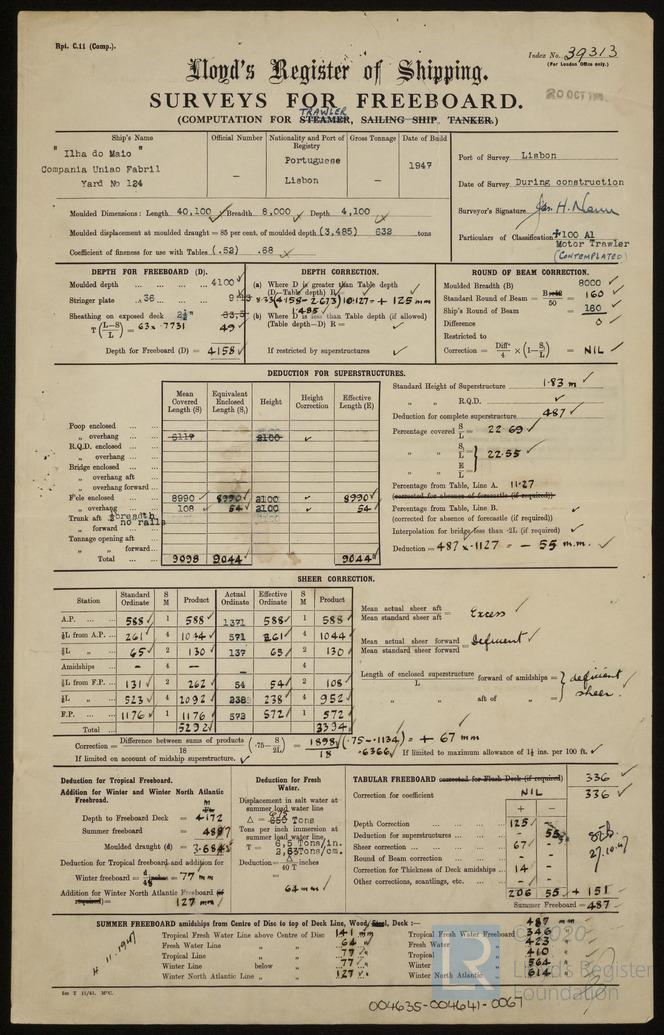 Rpt. C.11 (Comp.).
Index No. 39313
(For London Office only.)
Lloyd's Register of Shipping.
20 OCT
SURVEYS FOR FREEBOARD.
TRAWLER
(COMPUTATION FOR STEAMER, SAILING SHIP, TANKER.)
Ship's Name
Official Number
Nationality and Port of Registry
Gross Tonnage
Date of Build
" Ilha do Maio "
Compania Uniao Fabril
Yard No 124
—
Portuguese
Lisbon
—
1947
Port of Survey Lisbon
Date of Survey During construction
Surveyor's Signature
Particulars of Classification +100 A1
Motor Trawler
(CONTEMPLATED)
Moulded Dimensions: Length 40,100 Breadth 8,000 Depth 4,100
Moulded displacement at moulded draught = 85 per cent. of moulded depth (3,485) 632 tons
Coefficient of fineness for use with Tables (.52) .68
DEPTH FOR FREEBOARD (D).
Moulded depth 4100
Stringer plate .36 9
Sheathing on exposed deck 2½"
T (L-S/L) = 63 x .7731 49
Depth for Freeboard (D) = 4158
DEPTH CORRECTION.
(a) Where D is greater than Table depth
(D-Table depth) R =
8.33(4158-2673)10.127 = + 125 mm
1485
(b) Where D is less than Table depth (if allowed)
(Table depth—D) R =
If restricted by superstructures
ROUND OF BEAM CORRECTION.
Moulded Breadth (B) 8000
Standard Round of Beam = B/50 = 160
Ship's Round of Beam = 160
Difference 0
Restricted to
Correction = Diff/4 x (1-S₁/L) = NIL
DEDUCTION FOR SUPERSTRUCTURES.
Mean Covered Length (S)
Equivalent Enclosed Length (S₁)
Height
Height Correction
Effective Length (E)
Poop enclosed
„ overhang 2100
R.Q.D. enclosed
„ overhang
Bridge enclosed
„ overhang aft
„ overhang forward
F'cle enclosed 8990 8990 2100 8990
„ overhang 108 54 2100 54
Trunk aft ½ breadth
„ forward no rails
Tonnage opening aft
„ „ forward
Total 9098 9044 9044
Standard Height of Superstructure 1.83 m
„ „ R.Q.D.
Deduction for complete superstructure 487
Percentage covered S/L = 22.69
„ „ S₁/L =
E/L = 22.55
Percentage from Table, Line A. 11.27
(corrected for absence of forecastle (if required))
Percentage from Table, Line B.
(corrected for absence of forecastle (if required))
Interpolation for bridge less than .2L (if required)
Deduction = 487 x .1127 = - 55 m.m.
SHEER CORRECTION.
Station
Standard Ordinate
S M
Product
Actual Ordinate
Effective Ordinate
S M
Product
A.P. 588 1 588 1371 588 1 588
⅙L from A.P. 261 4 1044 571 261 4 1044
⅓L „ 65 2 130 137 65 2 130
Amidships — 4 — — 4
⅓L from F.P. 131 2 262 54 54 2 108
⅙L „ 523 4 2092 238 238 4 952
F.P. 1176 1 1176 572 572 1 572
Total 5292 3394
Mean actual sheer aft / Mean standard sheer aft = Excess
Mean actual sheer forward / Mean standard sheer forward = Deficient
Length of enclosed superstructure / L forward of amidships =
„ „ aft of „ =
deficient sheer.
Correction = Difference between sums of products / 18 (.75-S/2L) = 1898/18 (.75-.1134) = + 67 mm
.6366
If limited on account of midship superstructure.
If limited to maximum allowance of 1½ ins. per 100 ft.
Deduction for Tropical Freeboard.
Addition for Winter and Winter North Atlantic Freeboard.
m
Depth to Freeboard Deck = 4172
Summer freeboard = 487
Moulded draught (d) = 3.685
Deduction for Tropical freeboard and addition for
Winter freeboard = d/48 = 77 mm
Addition for Winter North Atlantic Freeboard (if required) = 127 mm
Deduction for Fresh Water.
Displacement in salt water at summer load water line
Δ = Tons
Tons per inch immersion at summer load water line
T = 6,5 Tons/in.
2,63 Tons/cm.
Deduction = Δ/40 T inches
= 64 mm
TABULAR FREEBOARD corrected for Flush Deck (if required) 336
Correction for coefficient NIL 336
+ -
Depth Correction 125
Deduction for superstructures 55
Sheer correction 67
Round of Beam correction —
Correction for Thickness of Deck amidships 14
Other corrections, scantlings, etc.
206 55 + 151
Summer Freeboard = 487
27.10.47
SUMMER FREEBOARD amidships from Centre of Disc to top of Deck Line, Wood, Steel, Deck :— 487 mm
Tropical Fresh Water Line above Centre of Disc 141 mm
Fresh Water Line „ „ 64 „
Tropical Line „ „ 77 „
Winter Line below „ 77 „
Winter North Atlantic Line „ „ 127 „
Tropical Fresh Water Freeboard 346 „
Fresh Water „ 423 „
Tropical „ 410 „
Winter „ 564 „
Winter North Atlantic „ 614 „
11.1947
LR
© 2020
Lloyd's Register
Foundation
004635-004641-0067